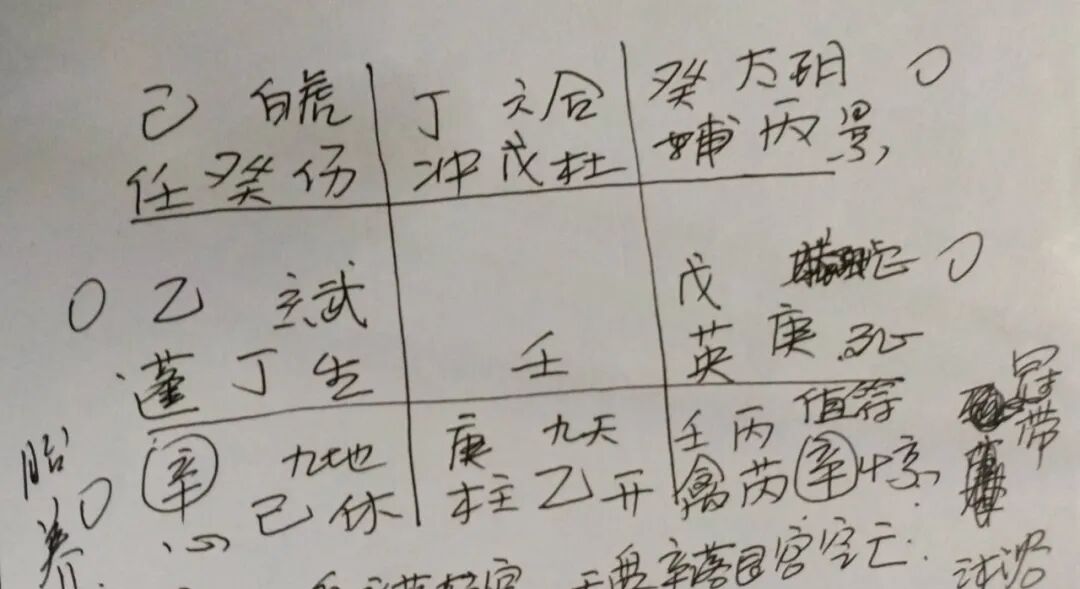 己 白虎 丁 六合 癸 太阴 〇
任癸伤 冲戊杜 辅丙景
〇 乙 玄武 戊 〇
蓬丁生 壬 英庚死
胎养 〇 辛 九地 庚 九天 壬丙 值符 冠带
心 己休 柱乙开 禽芮辛惊
辛落 宫空亡